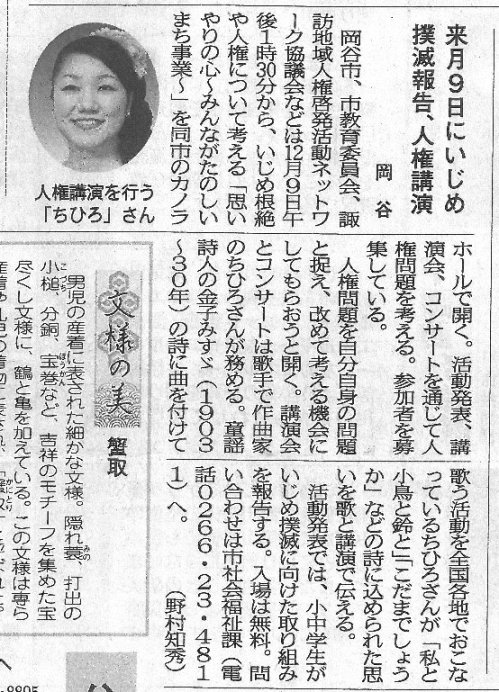 来月9日にいじめ
撲滅報告、人権講演
岡谷
岡谷市、市教育委員会、諏
訪地域人権啓発活動ネットワ
ーク協議会などは12月9日午
後1時30分から、いじめ根絶
や人権について考える「思い
やりの心〜みんながたのしい
まち事業〜」を同市のカノラ
人権講演を行う
「ちひろ」さん
ホールで開く。活動発表、講
演会、コンサートを通じて人
権問題を考える。参加者を募
集している。
人権問題を自分自身の問題
と捉え、改めて考える機会に
してもらおうと開く。講演会
とコンサートは歌手で作曲家
のちひろさんが務める。童謡
詩人の金子みすゞ(1903
〜30年)の詩に曲を付けて
歌う活動を全国各地でおこな
っているちひろさんが「私と
小鳥と鈴と」「こだまでしょう
か」などの詩に込められた思
いを歌と講演で伝える。
活動発表では、小中学生が
いじめ撲滅に向けた取り組み
を報告する。入場は無料。問
い合わせは市社会福祉課(電
話0266・23・481
1)へ。
(野村知秀)
文様の美
蟹取
男児の産着に表された細かな文様。隠れ蓑、打出の
小槌、分銅、宝巻など、吉祥のモチーフを集めた宝
尽くし文様に、鶴と亀を加えている。この文様は専ら
へ
8805